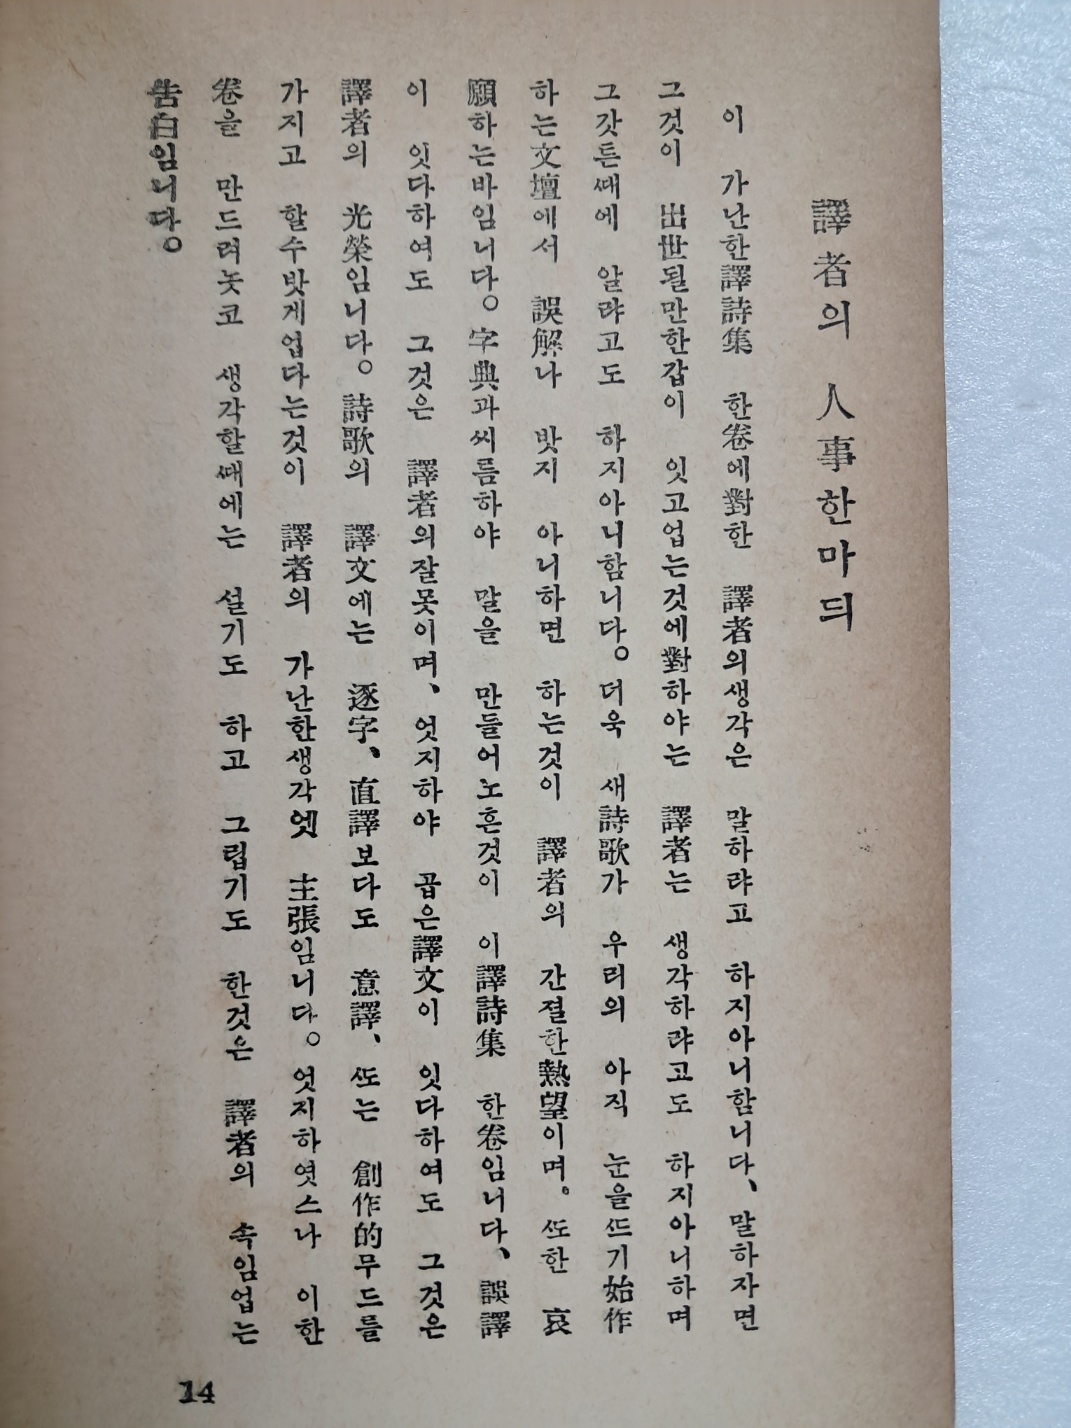 譯者의 人事한마듸
이 가난한譯詩集 한卷에對한 譯者의생각은 말하랴고 하지아니함니다、말하자면
그것이 出世될만한갑이 잇고업는것에對하야는 譯者는 생각하랴고도 하지아니하며
그갓튼ᄯᅢ에 알랴고도 하지아니함니다。더욱 새詩歌가 우리의 아직 눈을ᄯᅳ기始作
하는文壇에서 誤解나 밧지 아니하면 하는것이 譯者의 간절한熱望이며。ᄯᅩ한 哀
願하는바임니다。字典과씨름하야 말을 만들어노흔것이 이譯詩集 한卷임니다、誤譯
이 잇다하여도 그것은 譯者의잘못이며、엇지하야 곱은譯文이 잇다하여도 그것은
譯者의 光榮임니다。詩歌의 譯文에는 逐字、直譯보다도 意譯、ᄯᅩ는 創作的무드를
가지고 할수밧게업다는것이 譯者의 가난한생각엣 主張임니다。엇지하엿스나 이한
卷을 만드러놋코 생각할ᄯᅢ에는 설기도 하고 그립기도 한것은 譯者의 속임업는
告白임니다。
14